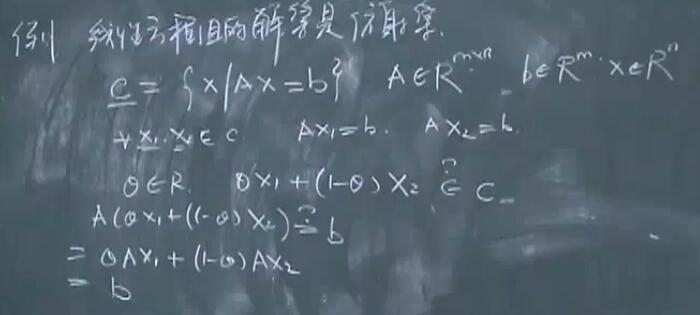 例 线性方程组的解集是仿射集.
C = {x | Ax = b} A ∈ R^{m×n} b ∈ R^m. x ∈ R^n
∀ x₁. x₂ ∈ C. Ax₁ = b. Ax₂ = b.
θ ∈ R. θx₁ + (1-θ)x₂ ∈? C
A(θx₁ + (1-θ)x₂) =? b
= θAx₁ + (1-θ)Ax₂
= b